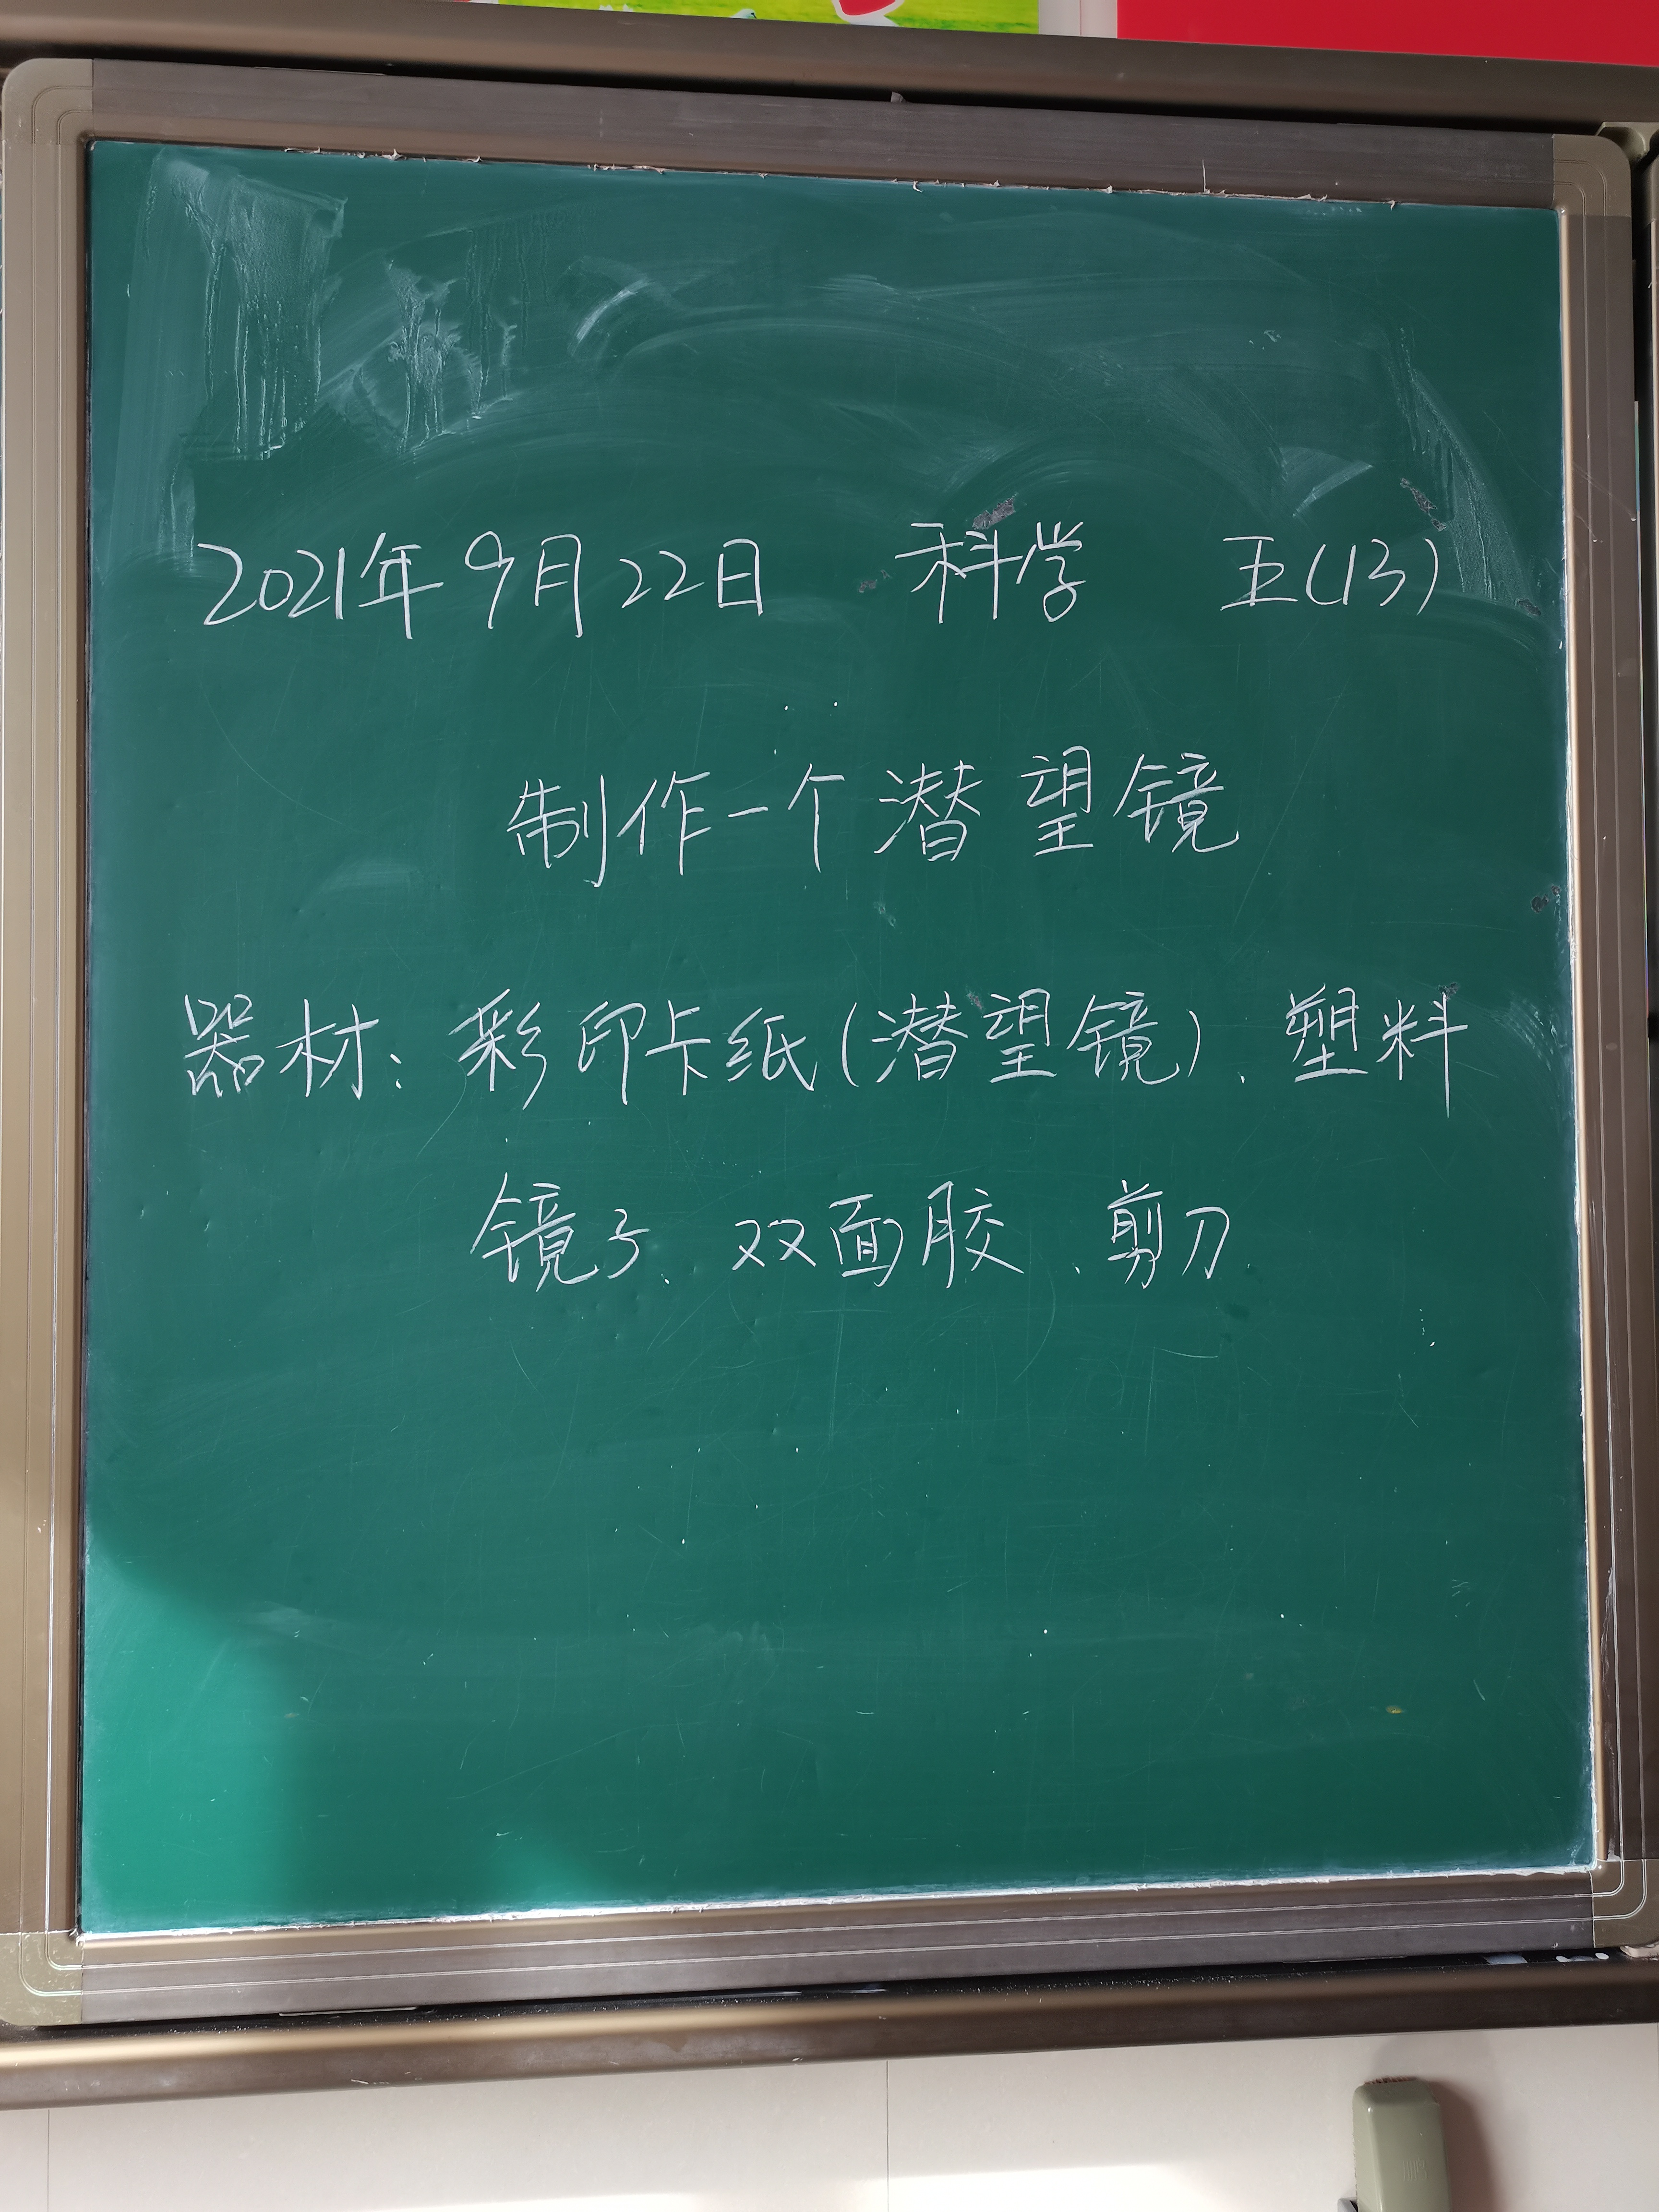 2021年9月22日 科学 五(13)
制作一个潜望镜
器材：彩印卡纸(潜望镜)、塑料
镜子、双面胶、剪刀